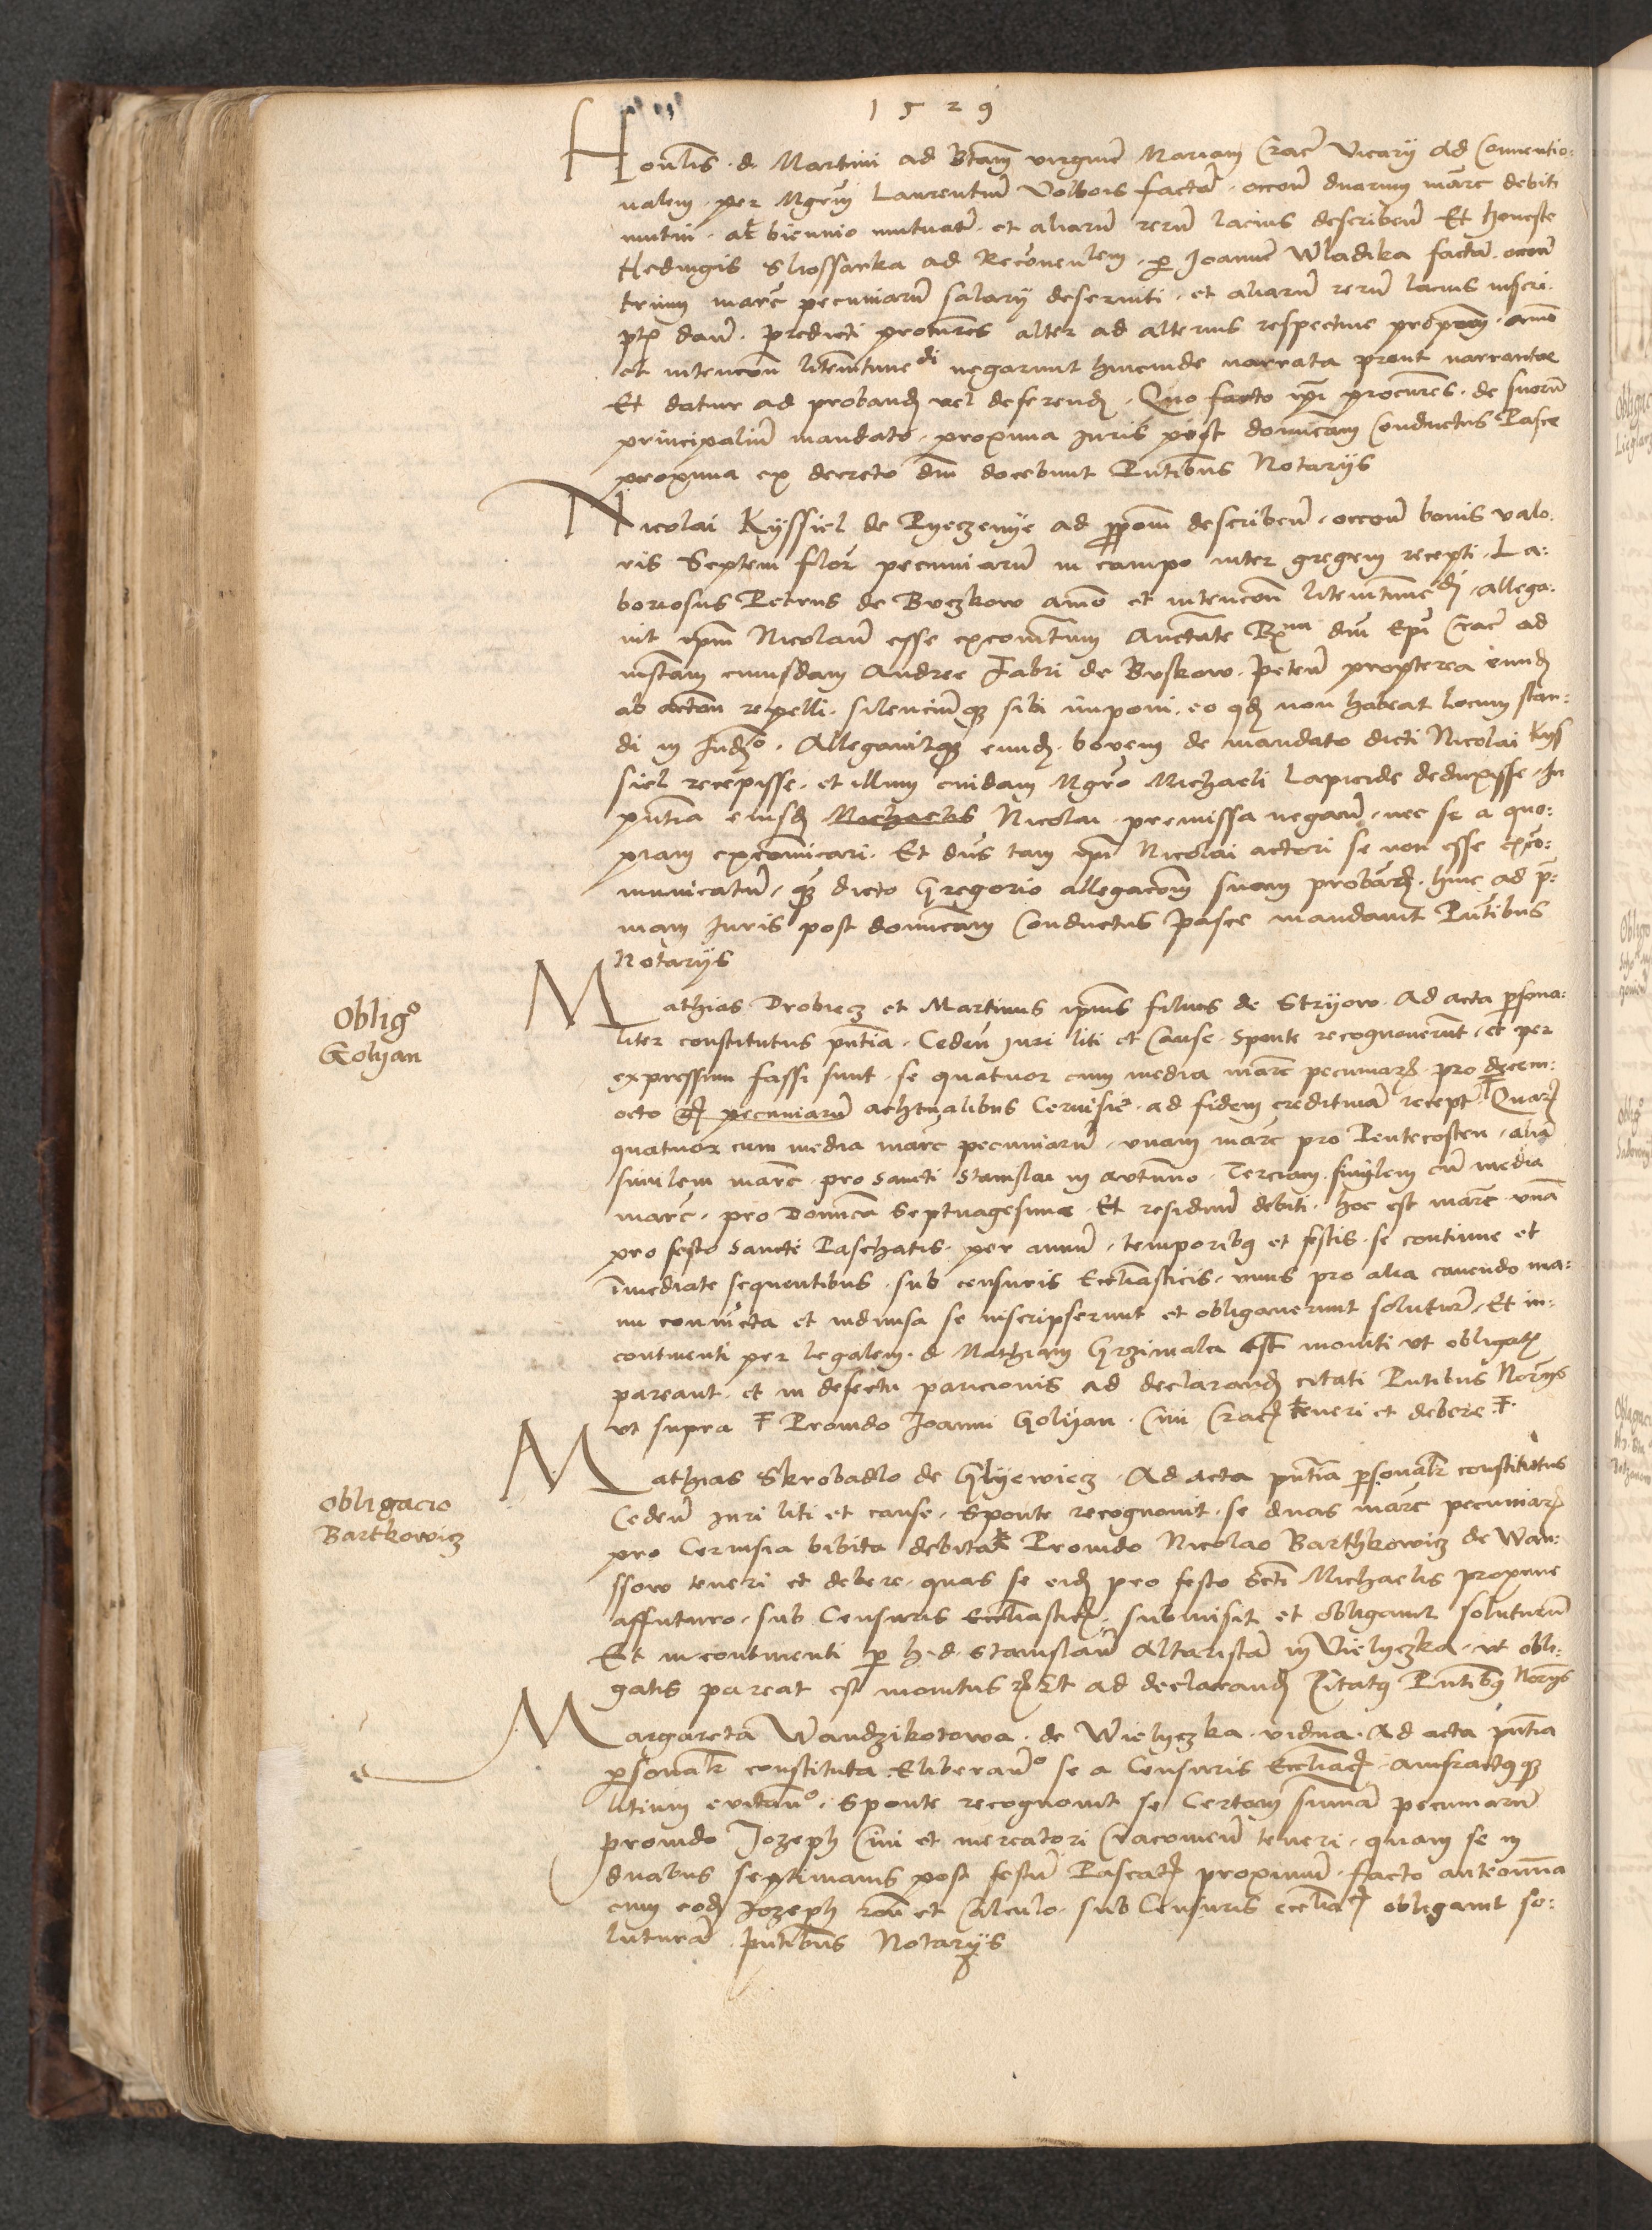 1529
Honlis d. Martini ad Btam virginē Mariam Crac̄ Vicarij ad Conventio:
nalem per Mgrm̄ Laurentiū Volbors factā occon̄ duarum marc̄ debiti
mutui ac̄ biennio mutuatē et aliarū rerū lacius describen̄ Et honeste
Hedingis Slossarka ad Recōnenlem p Joannē Wladika factā occon̄
trium marc̄ pecuniarū salary deserviti et aliarū rerū lacius inscri
dan̄ predicti procures alter ad alterius respective propom̄ amō
et intencōn litēmtuneᵈⁱ negarunt hincinde narrata prout narrantur
Et datur ad proband vel deferend Quo facto ipi procures de suorū
principaliū mandato proxima Juris post domīcam Conductus Pasce
proxima ex decreto dni docebunt Pntibus Notarijs
Nicolai Kyssiel de Pyeczenye ad ppom̄ describen̄ occon̄ bovis valo
ris Septem flor̄ pecuniarū in campo inter gregem recepti La:
boriosus Petrus de Buczkow amō et intencōn litemtuneᵈⁱ allega:
vit ipm̄ Nicolaū esse excoīcatum Auctate Rxmi dni Epi Crac̄ ad
instam cuiusdam Andree Fabri de Buskow Peten̄ propterea eund
ab actōn repelli silenciūq sibi imponi eo qd non habeat locum stan:
di in Judº Allegavitq eund bovem de mandato dicti Nicolai Kys
siel recepisse et illum cuidam Mgrō Michaeli Lapicide deduxisse In
pn̄tia eiusd Michaelis Nicolai premissa negan̄ nec se a quo:
piam excomunicari Et dn̄s tam ipi Nicolai actori se non esse exco:
municatū q dicto Gregorio allegacōm suam proband hinc ad p:
mam Juris post domīcam Conductus Pasce mandavit Pntibus
Notarijs
Obligº
Golyan
Mathias Drobicz et Martinus ipius filius de Stryow Ad acta psona:
liter constitutus pn̄tia Ceden̄ Juri liti et Cause Sponte recognoverunt et per
expressum fassi sunt se quatuor cum media marc̄ pecuniar pro decem:
octo pecuniarū achtualibus Cervisie ad fidem creditivā recept Quar
quatuor cum media marc̄ pecuniarū vnam marc̄ pro Pentecosten aliā
similem marc̄ pro Sancti Stanislai in autūno Terciam similem cū media
marc̄ pro Domīca Septuagesime Et residuū debiti hoc est marc̄ vnā
pro festo Sancte Paschatis per annū temporibq et festis se continue et
īmediate sequentibus sub censuris Ecclīasticis vnus pro alia cavendo ma:
nu coniūcta et indivisa se inscripserunt et obligaverunt soluturū Et in:
continenti per legalem d Mathiam Grzimala est moniti vt obligatis
pareant et in defectu paricionis ad declarand citati Pntibus Norijs
vt supra Ŧ Provido Joanni Golyan Civi Crac̄ teneri et debere Ŧ
Obligacio
Bartkowicz
Mathias Skrobadlo de Glyewicz Ad acta pn̄tia psonalr constitutus
Ceden̄ Juri liti et cause Sponte recognovit se duas marc̄ pecuniar
pro Cervisia bibita debita Provido Nicolao Barthkowicz de Wan:
ssow teneri et debere quas se eid pro festo Scti Michaelis proxime
affuturo sub Censuris Ecclīastic submisit et obligavit soluturū
Et in continenti p h. d. Stanislaū Altaristā in Vielyczka vt obli:
gatis pareat est monitus Et ad declarand Citatq Pntibq Norijs
Margareta Wandzikotowa de Wielyczka vidua Ad acta pn̄tia
psonalr constituta Eliberanº se a Censuris Ecclīac amfractqq
litium evitanº Sponte recognovit se Certam sumā pecuniarū
provido Jozeph Civi et mercatori Cracovien̄ teneri quam se in
duabus septimanis post festū Pascat proximū facto anteōmnia
cum eod Jozeph con̄ et Calculo sub Censuris ecclīac obligavit so:
luturā Pntibus Notarijs